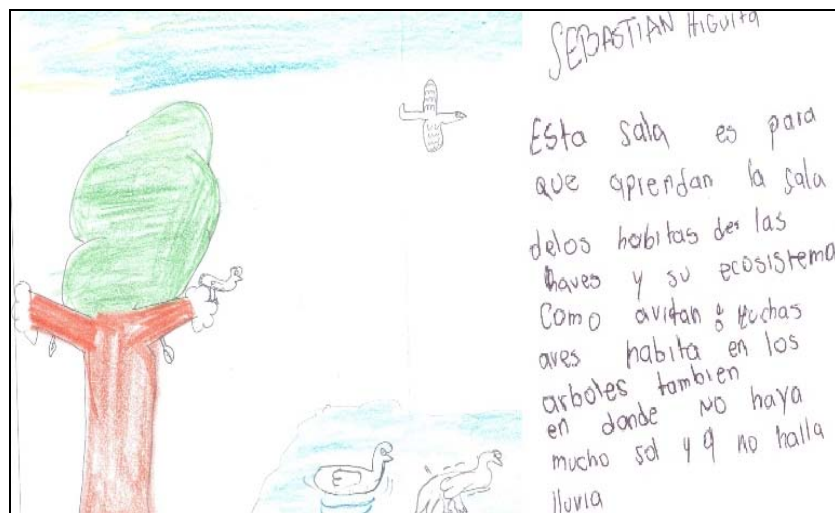 SEBASTIAN HiGuita
Esta sala es para
que aprendan la sala
delos habitas de las
haves y su ecosistema
Como avitan : Muchas
aves habita en los
arboles tambien
en donde no haya
mucho sol y q no halla
lluvia